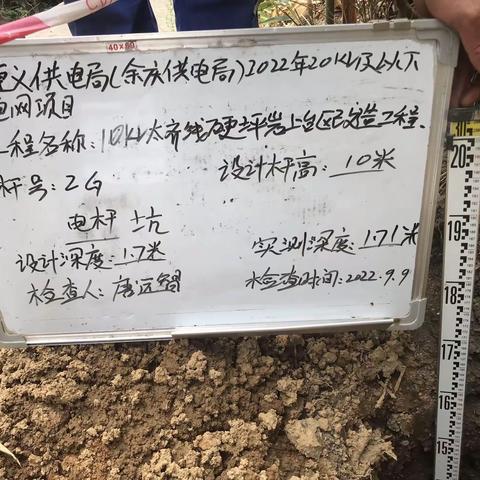 40×60
遵义供电局(余庆供电局)2022年20KV及以下
电网项目
工程名称:10KV太齐线硬坪岩上台区改造工程.
杆号:2G
设计杆高:10米
电杆坑
设计深度:1.7米
实测深度:1.71米
检查人:唐远智
检查时间:2022.9.9
20
19
18
17
16
15